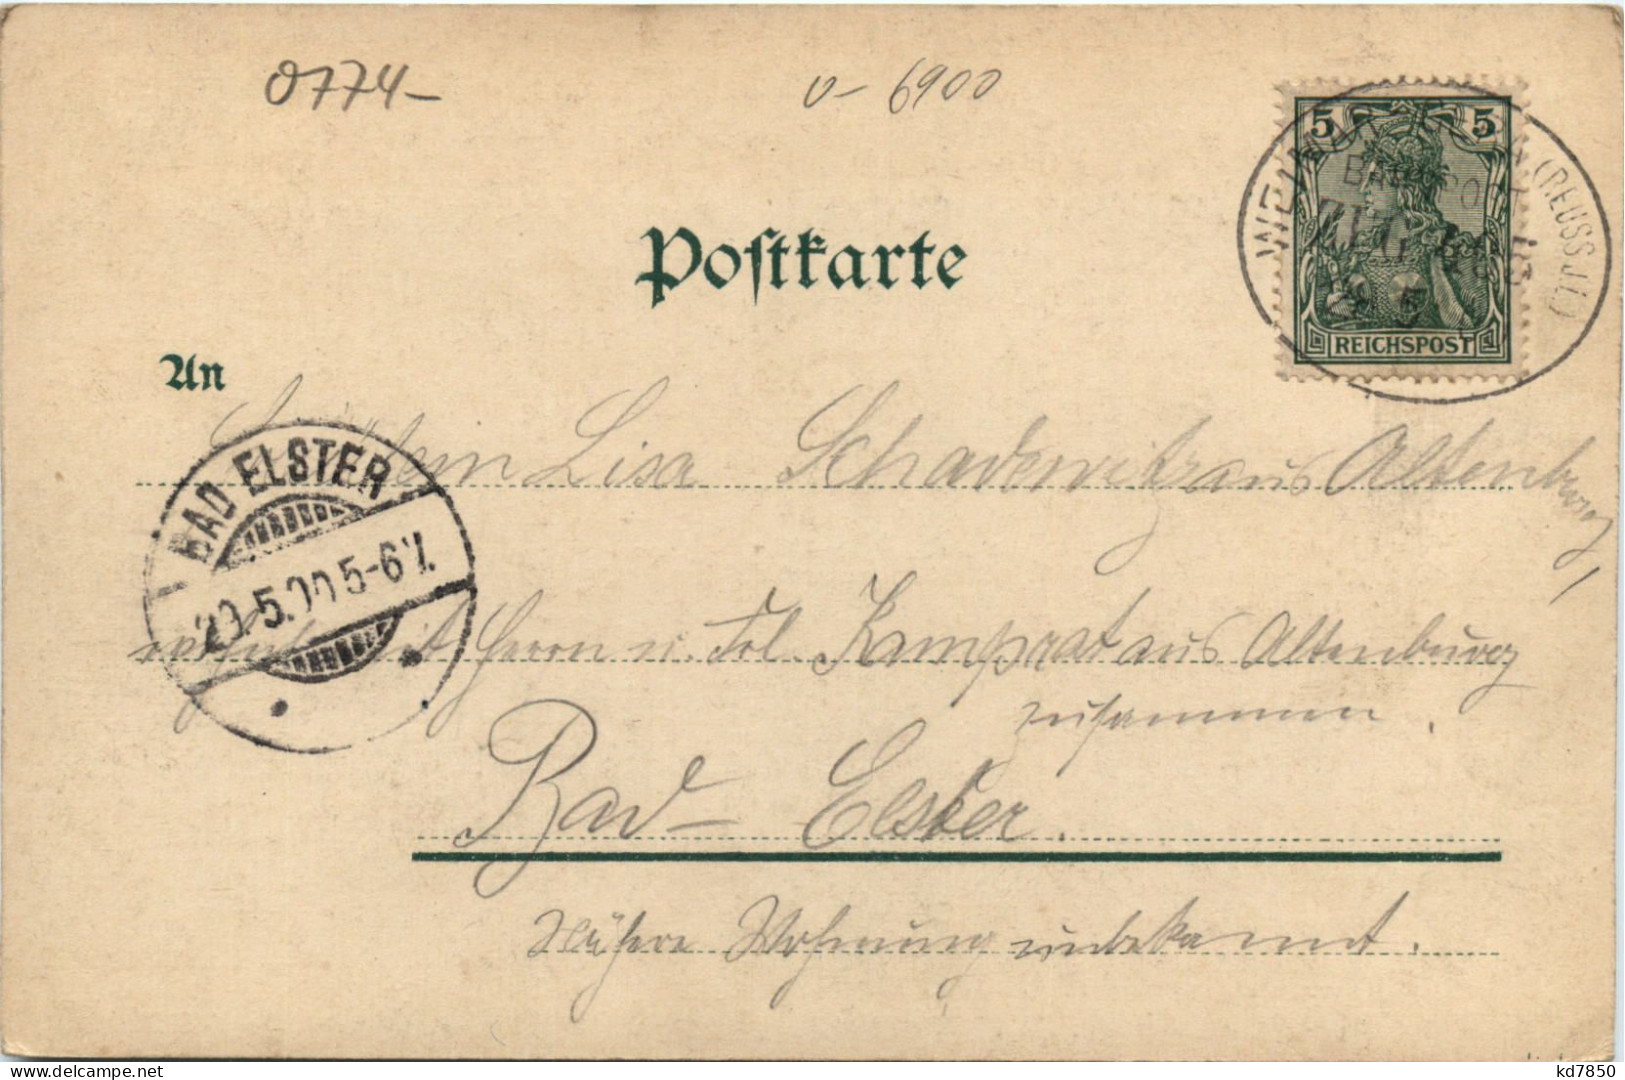 0774-
v- 6900
5 5
(REUSS J.L.)
BAHNPOST
5
REICHSPOST
Postkarte
An
Fräulein Lisa Schadewitz aus Altenburg,
mit Herrn u. Frl. Kamprat aus Altenburg
zusammen.
Bad-Elster.
Nähere Wohnung unbekannt.
BAD ELSTER
20.5.00 5-6 V.
kd7850